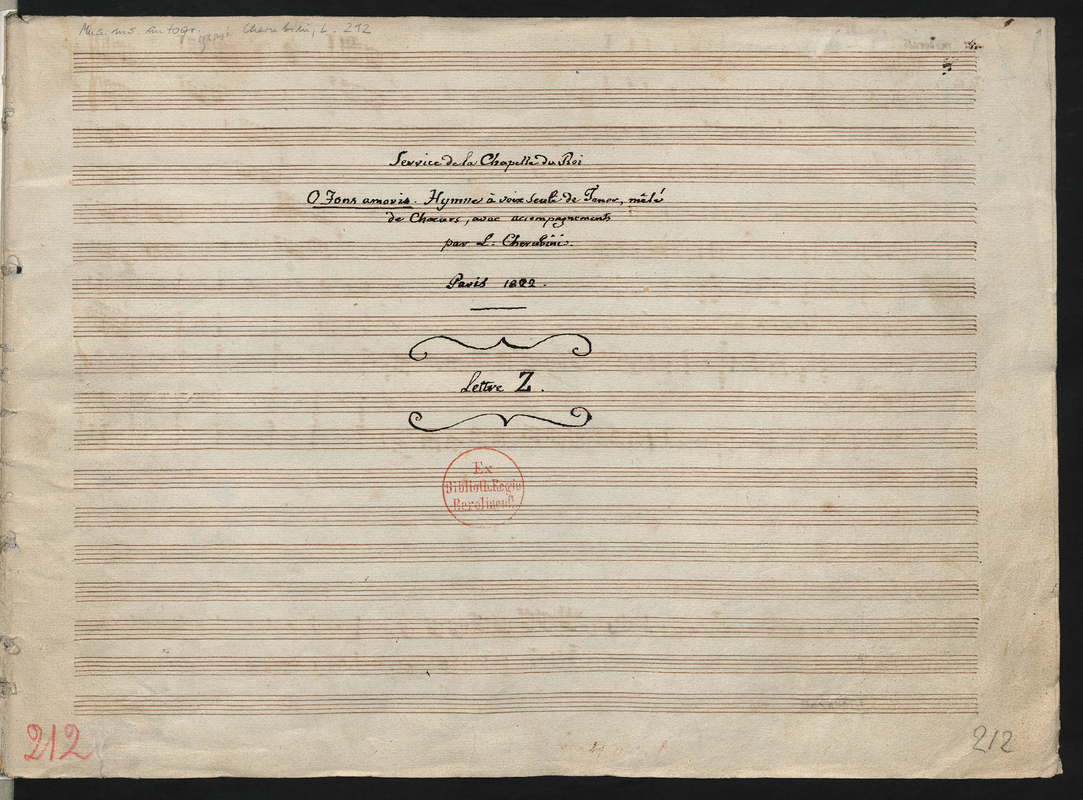 Mus. ms. autogr. Cherubini, L. 212
Service de la Chapelle du Roi
O Fons amoris. Hymne à voix seule de Tenor, mêlé
de Chœurs, avec accompagnements
par L. Cherubini.
Paris 1822.
Lettre Z.
Ex
Biblioth. Regia
Berolinensi
212
212